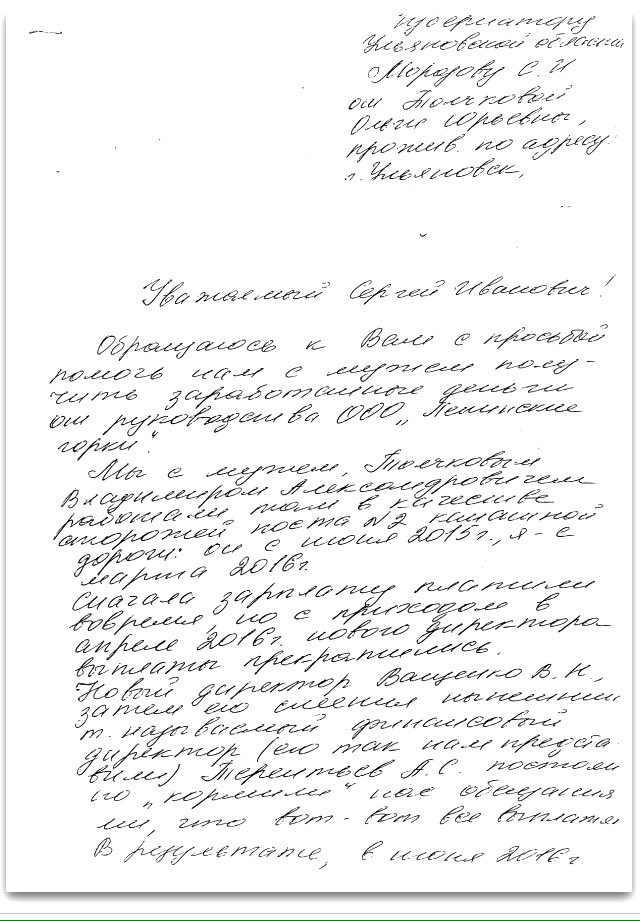 Губернатору
Ульяновской области
Морозову С. И
от Толчковой
Ольги Юрьевны,
прожив. по адресу:
г. Ульяновск,
Уважаемый Сергей Иванович!
Обращаюсь к Вам с просьбой
помочь нам с мужем полу-
чить заработанные деньги
от руководства ООО „Ленинские
горки".
Мы с мужем, Толчковым
Владимиром Александровичем
работали там в качестве
сторожей поста №2 канатной
дороги: он с июня 2015г., я - с
марта 2016г.
Сначала зарплату платили
вовремя, но с приходом в
апреле 2016г. нового директора
выплаты прекратились.
Новый директор Ващенко В. Н.,
затем его сменил нынешний
т. называемый финансовый
директор (его так нам предста
вили) Терентьев А. С. постоян
но „кормили" нас обещания
ми, что вот-вот все выплатя
В результате, в июне 2016г